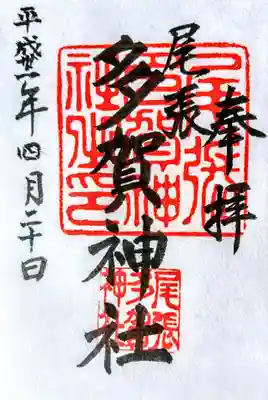 奉拝
尾張
多賀神社
平成廿一年四月二十日
尾張